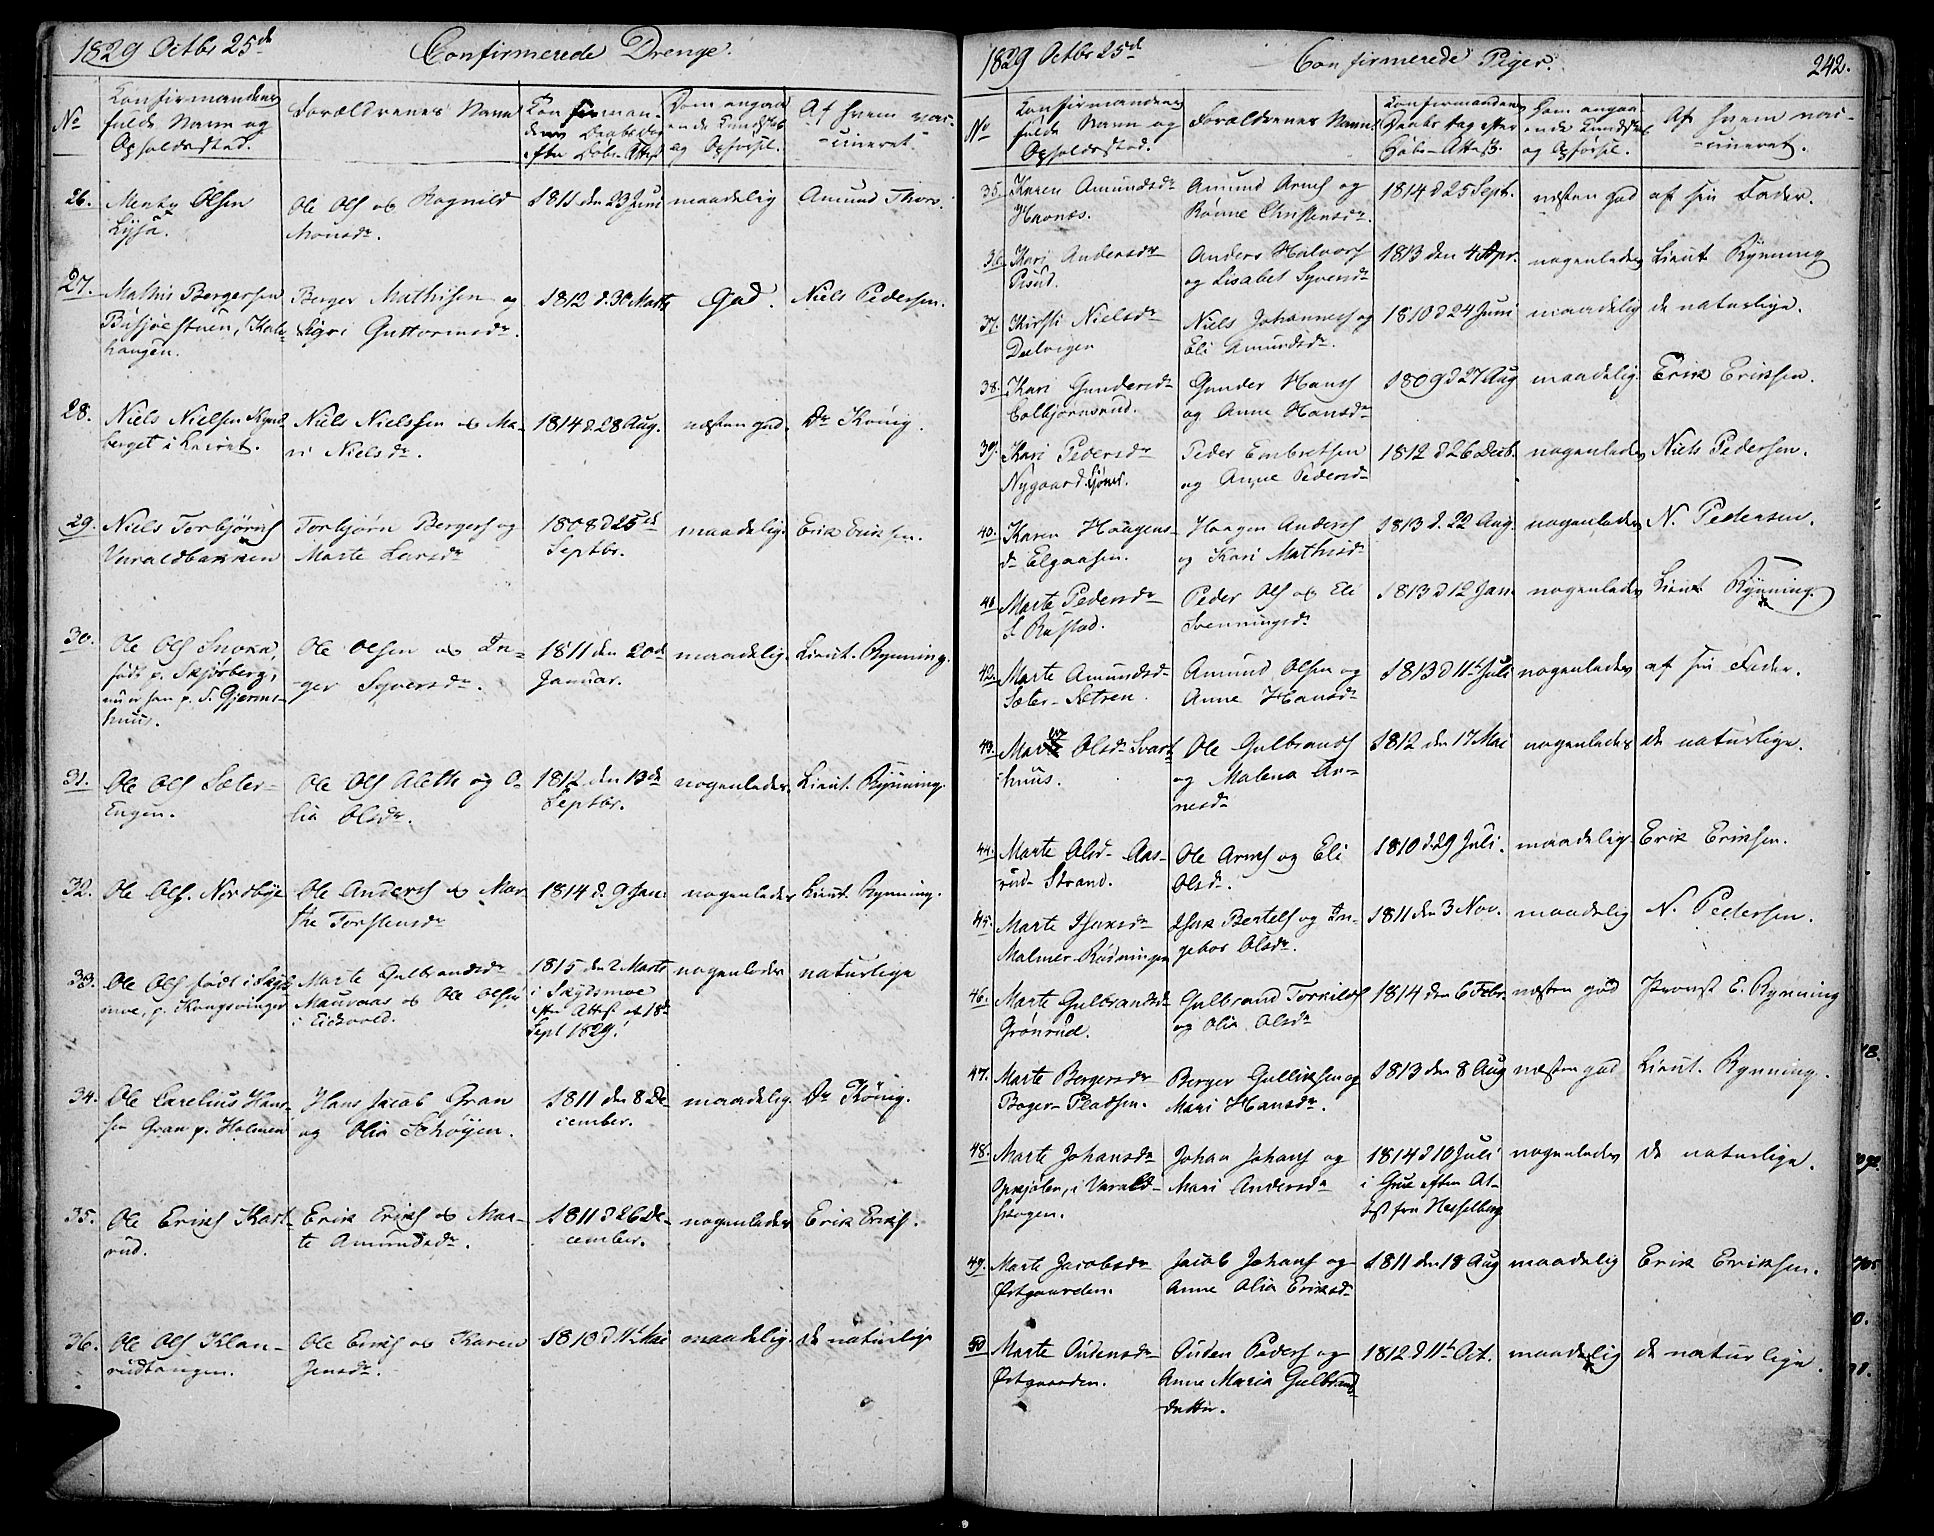 1829 Octbr 25de
Confirmerede Drenge.
No
Confirmandens fulde Navn og Opholdssted.
Forældrenes Navne
Confirmandens Daabsdag efter Døbe-Attest
Dom angaaende Kundskab og Opførsel.
Af hvem vaccineret.
26. Olsen Lysa. Ole Ols og Ragnild Monsdr. 1811 den 23 Juni maadelig Amund Thors.
27. Mathis Bergersen Berger Mathisen og Sigri Guttormsdr. 1812 d. 30 Marts God. Niels Pedersen.
28. Niels Nielsen Niels Nielssen og Mari Nielsdr. 1814 d. 28 Aug. næsten god Dr König.
29. Niels Torbjörns Varaldbakken Torbjørn Bergers og Marte Larsdr 1808 d 25de Septbr. maadelig. Erik Eriksen.
30. Ole Ols født p. Skjørberg, Ole Olsen og Inger Syversdr. 1811 den 20de Januar. maadelig. Lieut. Rynning.
31. Ole Ols Sæter-Engen. Ole Ols og Olia Olsdr. 1812 den 13de Septbr. nogenledes Lieut. Rynning.
32. Ole Ols. Nordbye Ole Anders og Marthe Torstensdr 1814 d. 9 Jan. nogenledes Lieut. Rynning.
33. Ole Ols født i p. Kongsvinger Marte Gulbrandsdr og Ole Olsen i Eidsvold. 1815 den 2 Marts i Skydsmoe efter Attest af 18de Sept 1829. nogenledes naturlige
34. Ole Carelius Hansen Gran p. Holmen Hans Jacob Gran og Olia Schøyen. 1811 den 8 December. maadelig. Dr König.
35. Ole Eriks Kartrud. Erik Eriks og Marte Amundsdr. 1811 d 26 December. nogenledes Erik Eriks.
36. Ole Ols Klanrudtangen. Ole Eriks og Karen Jensdr. 1810 d 11t Mai maadelig. de naturlige
1829 Octbr 25de
Confirmerede Piger.
242.
No
Confirmandens fulde Navn og Opholdssted.
Forældrenes Navne
Confirmandens Daabs dag efter Døbe-Attest.
Dom angaaende Kundskab og Opførsel.
Af hvem vaccineret.
35. Karen Amundsdr Amund Arnes og Rønne Christensdr. 1814 d 25 Sept. næsten god af sin Fader.
36. Kari Andersdr Anders Halvors og Lisabet Syversdr 1813 den 4 Apr. nogenledes Lieut Rynning
37. Kirsti Nielsdr Niels Johannes og Eli Amundsdr. 1810 d 24 Juni maadelig de naturlige.
38. Kari Gundersdr Colbjørnsrud. Gunder Hans og Anne Hansdr 1809 d 27 Aug maadelig. Erik Eriksen.
39. Kari Pedersdr Nygaard Peder Embretsen og Anne Pedersdr 1812 d 26 Decb. nogenledes Niels Pedersen.
40. Karen Haagensdr Elgaasen. Haagen Anders og Kari Mathisdr 1813 d. 22 Aug. nogenledes N. Pedersen.
41. Marte Pedersdr Rastad. Peder Ols og Eli Svenningsdr 1813 d 12 Jan. nogenledes Lieut Rynning.
42. Marte Amundsdr Sæter-Setren. Amund Olsen og Anne Hansdr 1813 d 11t Juli nogenledes af sin Fader.
43. Olsdr Svarthuus. Ole Gulbrands og Malena Arnesdr 1812 den 17 Mai nogenledes de naturlige.
44. Marte Olsdr Aasrud-Strand. Ole Arnes og Eli Olsdr. 1810 d. 29 Juli. maadelig Erik Eriksen.
45. Marte Isaksdr Malmer-Rødningen Isak Bertels og Ingebor Olsdr. 1811 den 3 Nov. maadelig N. Pedersen.
46. Marte Gulbrandsdr Grönrud. Gulbrand Torkilds og Olia Olsdr 1814 den 6 Febr. næsten god Provst E. Rynning
47. Marte Bergersdr Boger-Pladsen. Berger Gulliksen og Mari Hansdr. 1813 den 8 Aug næsten god Lieut. Rynning.
48. Marte Johansdr i Varaldskogen. Johan Johans og Mari Andersdr 1814 d 10 Juli i Grue efter Attest fra Hesselberg nogenledes de naturlige.
49. Marte Jacobsdr Østgaarden. Jacob Johans og Anne Olia Eriksdr 1811 den 18 Aug maadelig Erik Eriksen.
50 Marte Oudensdr Østgaarden. Ouden Peders og Anne Maria Gulbrandsdatter. 1812 d 11t Oct. maadelig de naturlige.